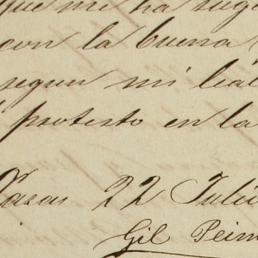 que me ha suge
con la buena
segun mi leal
protesto en la
Casas 22 Julio
Gil Peim